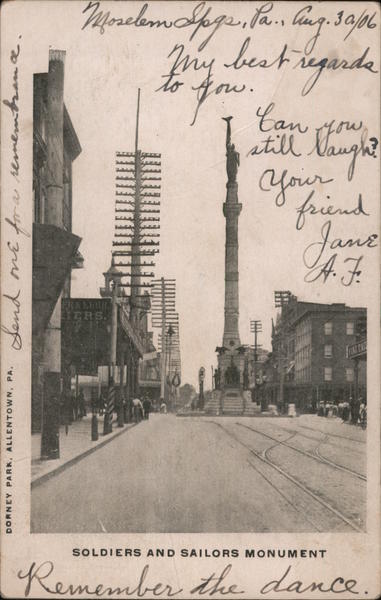 Moselem Spgs, Pa., Aug. 30/06
My best regards
to you.
Can you
still laugh?
Your
friend
Jane
A. F.
Send one for a remembrance.
DORNEY PARK, ALLENTOWN, PA.
IERS.
SOLDIERS AND SAILORS MONUMENT
Remember the dance.